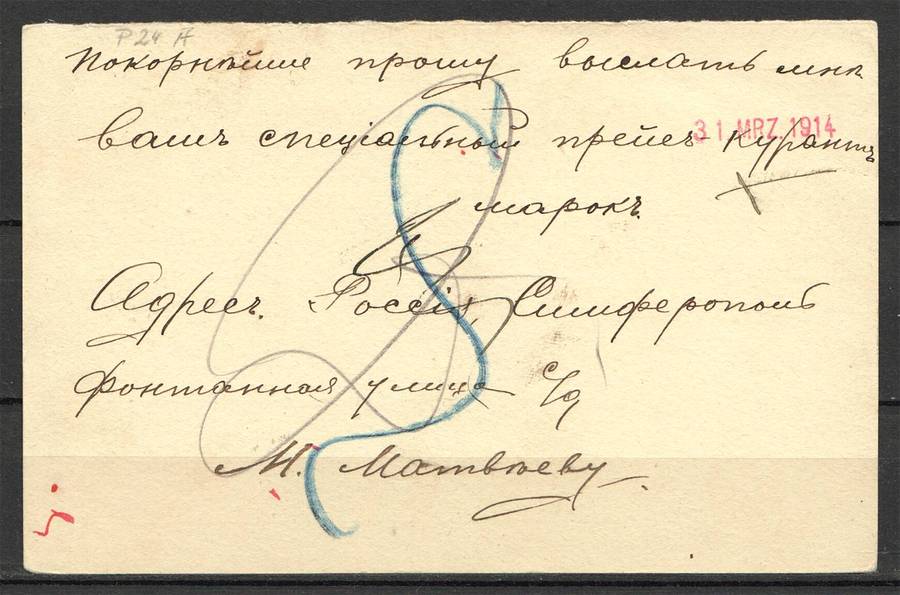 P 24 A
Покорнѣйше прошу выслать мнѣ
31. MRZ. 1914
вашъ спеціальный прейсъ-курантъ
марокъ.
Адресъ. Россія, Симферополь
Фонтанная улица
М. Матвѣеву